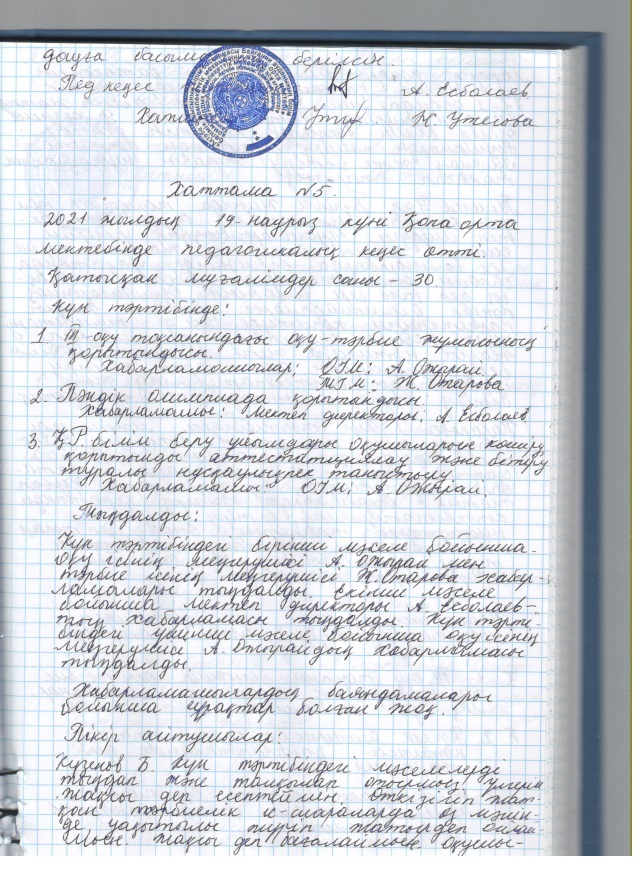 дауға бағыт берілсін.
Пед кеңес А. Есболаев
Хатшы Н. Утегова
Хаттама №5.
2021 жылдың 19-наурыз күні Қопа орта
мектебінде педагогикалық кеңес өтті.
Қатысқан мұғалімдер саны - 30.
Күн тәртібінде:
1. III-оқу тоқсанындағы оқу-тәрбие жұмысының
қорытындысы.
Хабарламашылар: ОІМ: А. Ожырай
ТІМ: Ж. Отарова
2. Пәндік олимпиада қорытындысы.
Хабарламашы: мектеп директоры; А. Есболаев
3. ҚР. білім беру ұйымдары оқушыларын көшіру,
қорытынды аттестатциялау және бітіру
туралы нұсқаулықпен таныстыру.
Хабарламашы: ОІМ: А. Ожырай.
Тыңдалды:
Күн тәртібіндегі бірінші мәселе бойынша-
оқу ісінің меңгерушісі А. Ожырай мен
тәрбие ісінің меңгерушісі Ж. Отарова хабар-
ламалары тыңдалды. Екінші мәселе
бойынша мектеп директоры А. Есболаев-
тың хабарламасы тыңдалды. Күн тәрті-
біндегі үшінші мәселе бойынша оқу ісінің
меңгерушісі А. Ожырайдың хабарламасы
тыңдалды.
Хабарламашылардың баяндамалары
бойынша сұрақтар болған жоқ.
Пікір айтушылар:
Кузенов Б. Күн тәртібіндегі мәселелерді
тыңдап және талқылап отырмыз. Үлгерім
жақсы деп есептеймін. Өткізіліп жат-
қан тәрбиелік іс-шараларда өз мәнін-
де уақытылы жүріп жатыр деп ойлай-
мын. Жақсы деп бағалаймын. Оқушы-